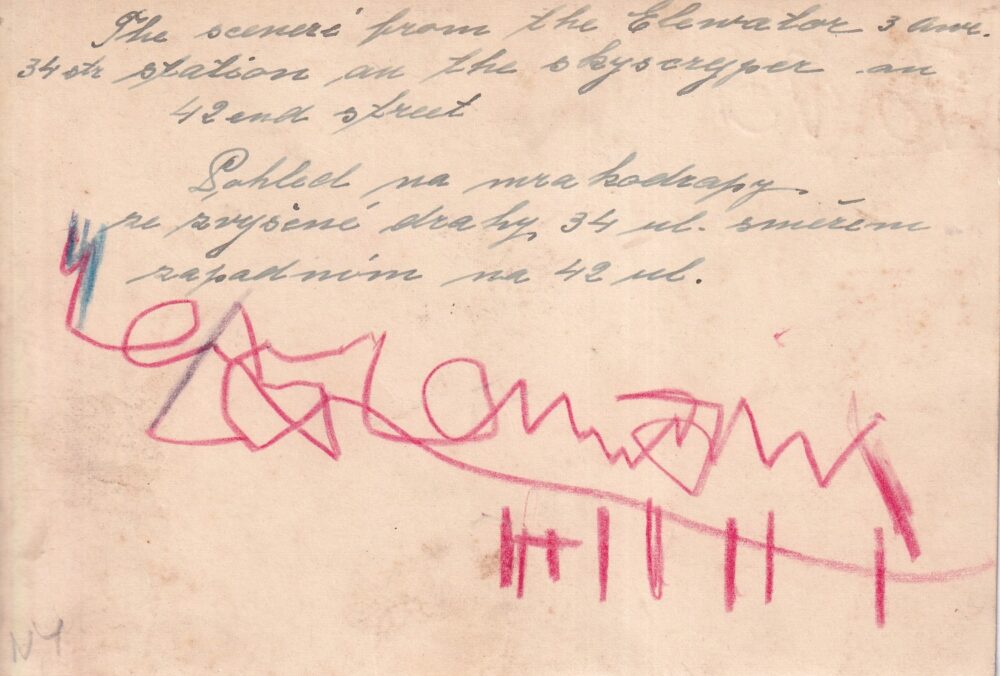 The sceneré from the Elewator 3 awe.
34 str station an the skyscryper an
42end street
Pohled na mrakodrapy
ze zvyšené drahy 34 ul. směrem
zapadním na 42 ul.
NY